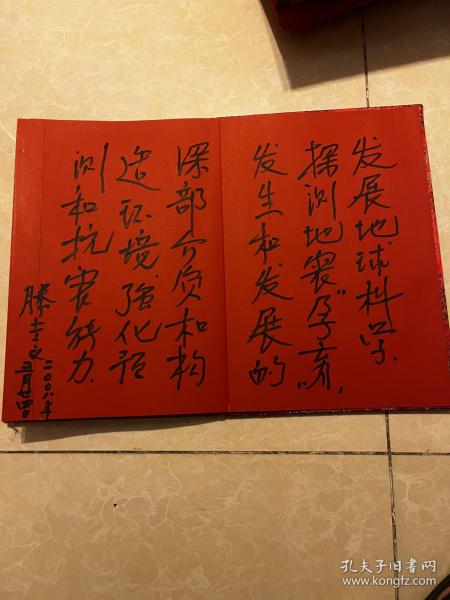 发展地球科学.
探测地震“孕育”,
发生和发展的
深部介质和构
造环境強化预
测和抗害能力.
滕吉文
二〇〇八年
五月廿四日
孔夫子旧书网
www.kongfz.com